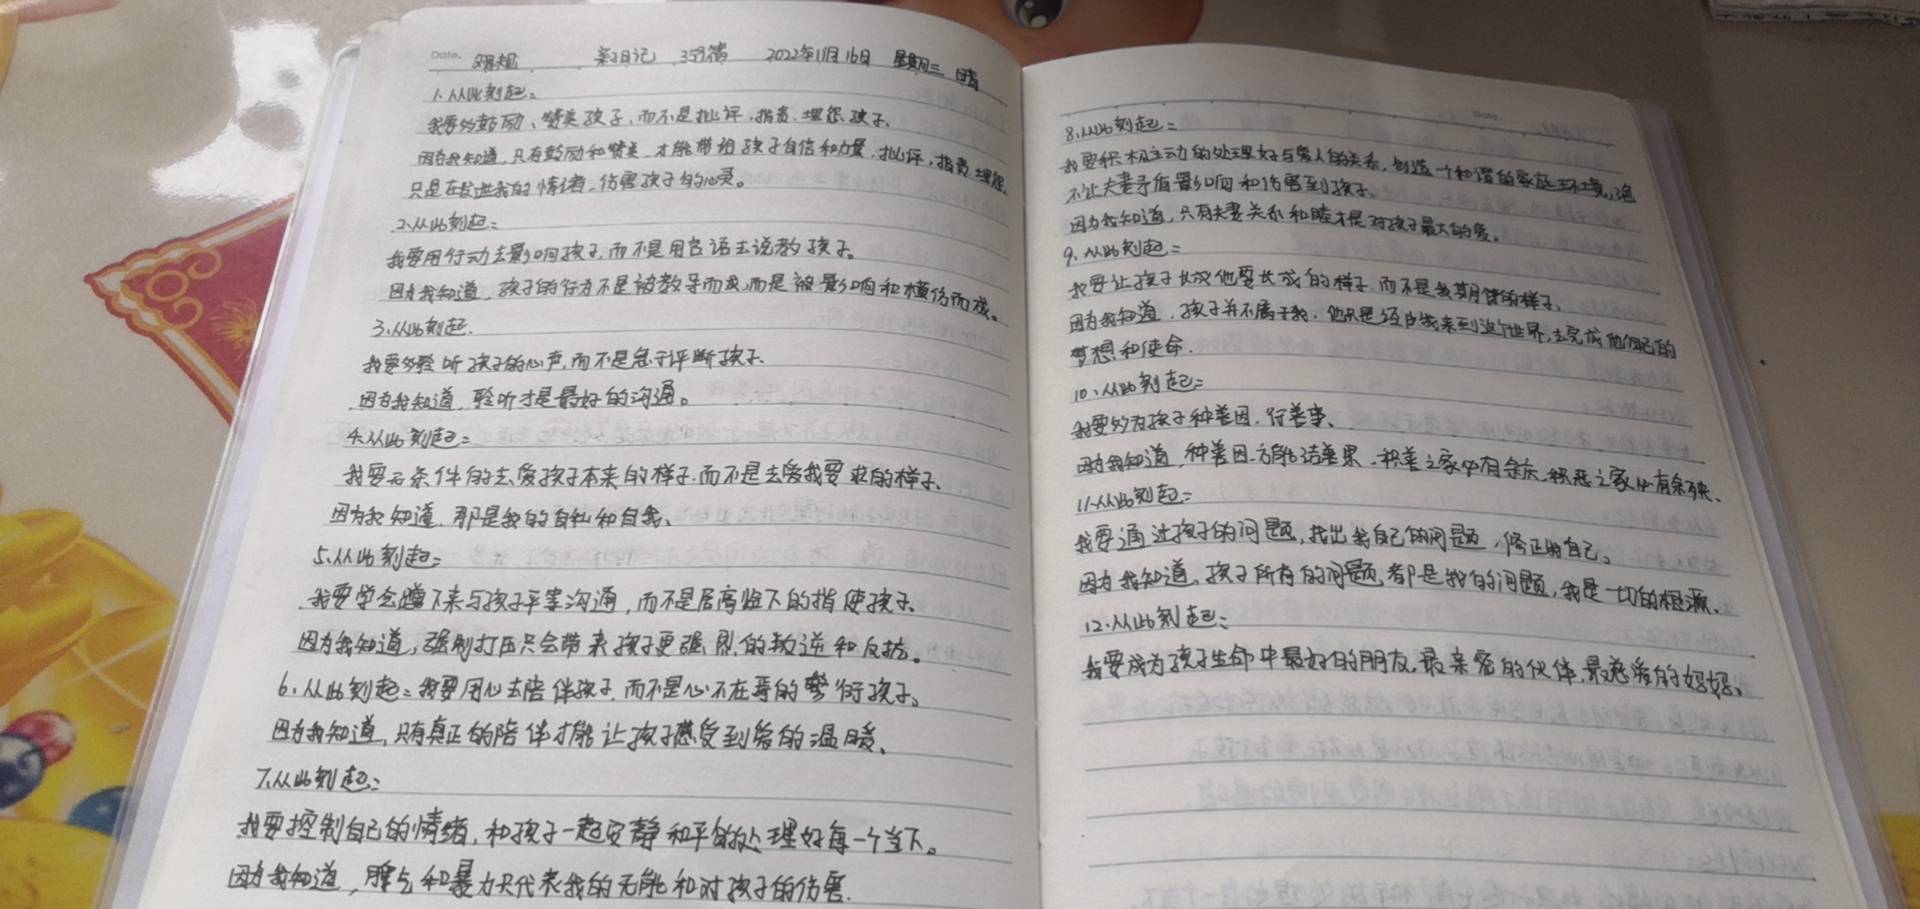 Date.
亲子日记 359篇 2022年11月16日 星期三 晴
1.从此刻起:
我要多鼓励、赞美孩子,而不是批评,指责,埋怨孩子、
因为我知道,只有鼓励和赞美,才能带给孩子自信和力量,批评,指责,埋怨,
只是在发泄我的情绪,伤害孩子的心灵。
2.从此刻起:
我要用行动去影响孩子,而不是用言语去说教孩子。
因为我知道,孩子的行为不是被教导而成,而是被影响和模仿而成。
3.从此刻起.
我要多聆听孩子的心声,而不是急于评断孩子、
因为我知道,聆听才是最好的沟通。
4.从此刻起:
我要无条件的去爱孩子本来的样子,而不是去爱我要求的样子、
因为我知道,那是我的自私和自我、
5.从此刻起:
我要学会蹲下来与孩子平等沟通,而不是居高临下的指使孩子、
因为我知道,强制打压只会带来孩子更强烈的叛逆和反抗。
6.从此刻起:我要用心去陪伴孩子,而不是心不在焉的敷衍孩子。
因为我知道,只有真正的陪伴才能让孩子感受到爱的温暖、
7.从此刻起:
我要控制自己的情绪,和孩子一起安静和平的处理好每一个当下。
因为我知道,脾气和暴力只代表我的无能和对孩子的伤害.
Date.
8.从此刻起:
我要积极主动的处理好与爱人的关系,创造一个和谐的家庭环境,绝
不让夫妻矛盾影响和伤害到孩子、
因为我知道,只有夫妻关系和睦才是对孩子最大的爱。
9.从此刻起:
我要让孩子长成他要长成的样子,而不是我期待的样子、
因为我知道,孩子并不属于我,他只是经由我来到这个世界,去完成他自己的
梦想和使命.
10、从此刻起:
我要多为孩子种善因,行善事、
因为我知道,种善因,方能结善果,积善之家必有余庆,积恶之家必有余殃、
11.从此刻起:
我要通过孩子的问题,找出我自己的问题,修正我自己。
因为我知道,孩子所有的问题,都是我的问题,我是一切的根源、
12.从此刻起:
我要成为孩子生命中最好的朋友,最亲密的伙伴,最慈爱的妈妈、